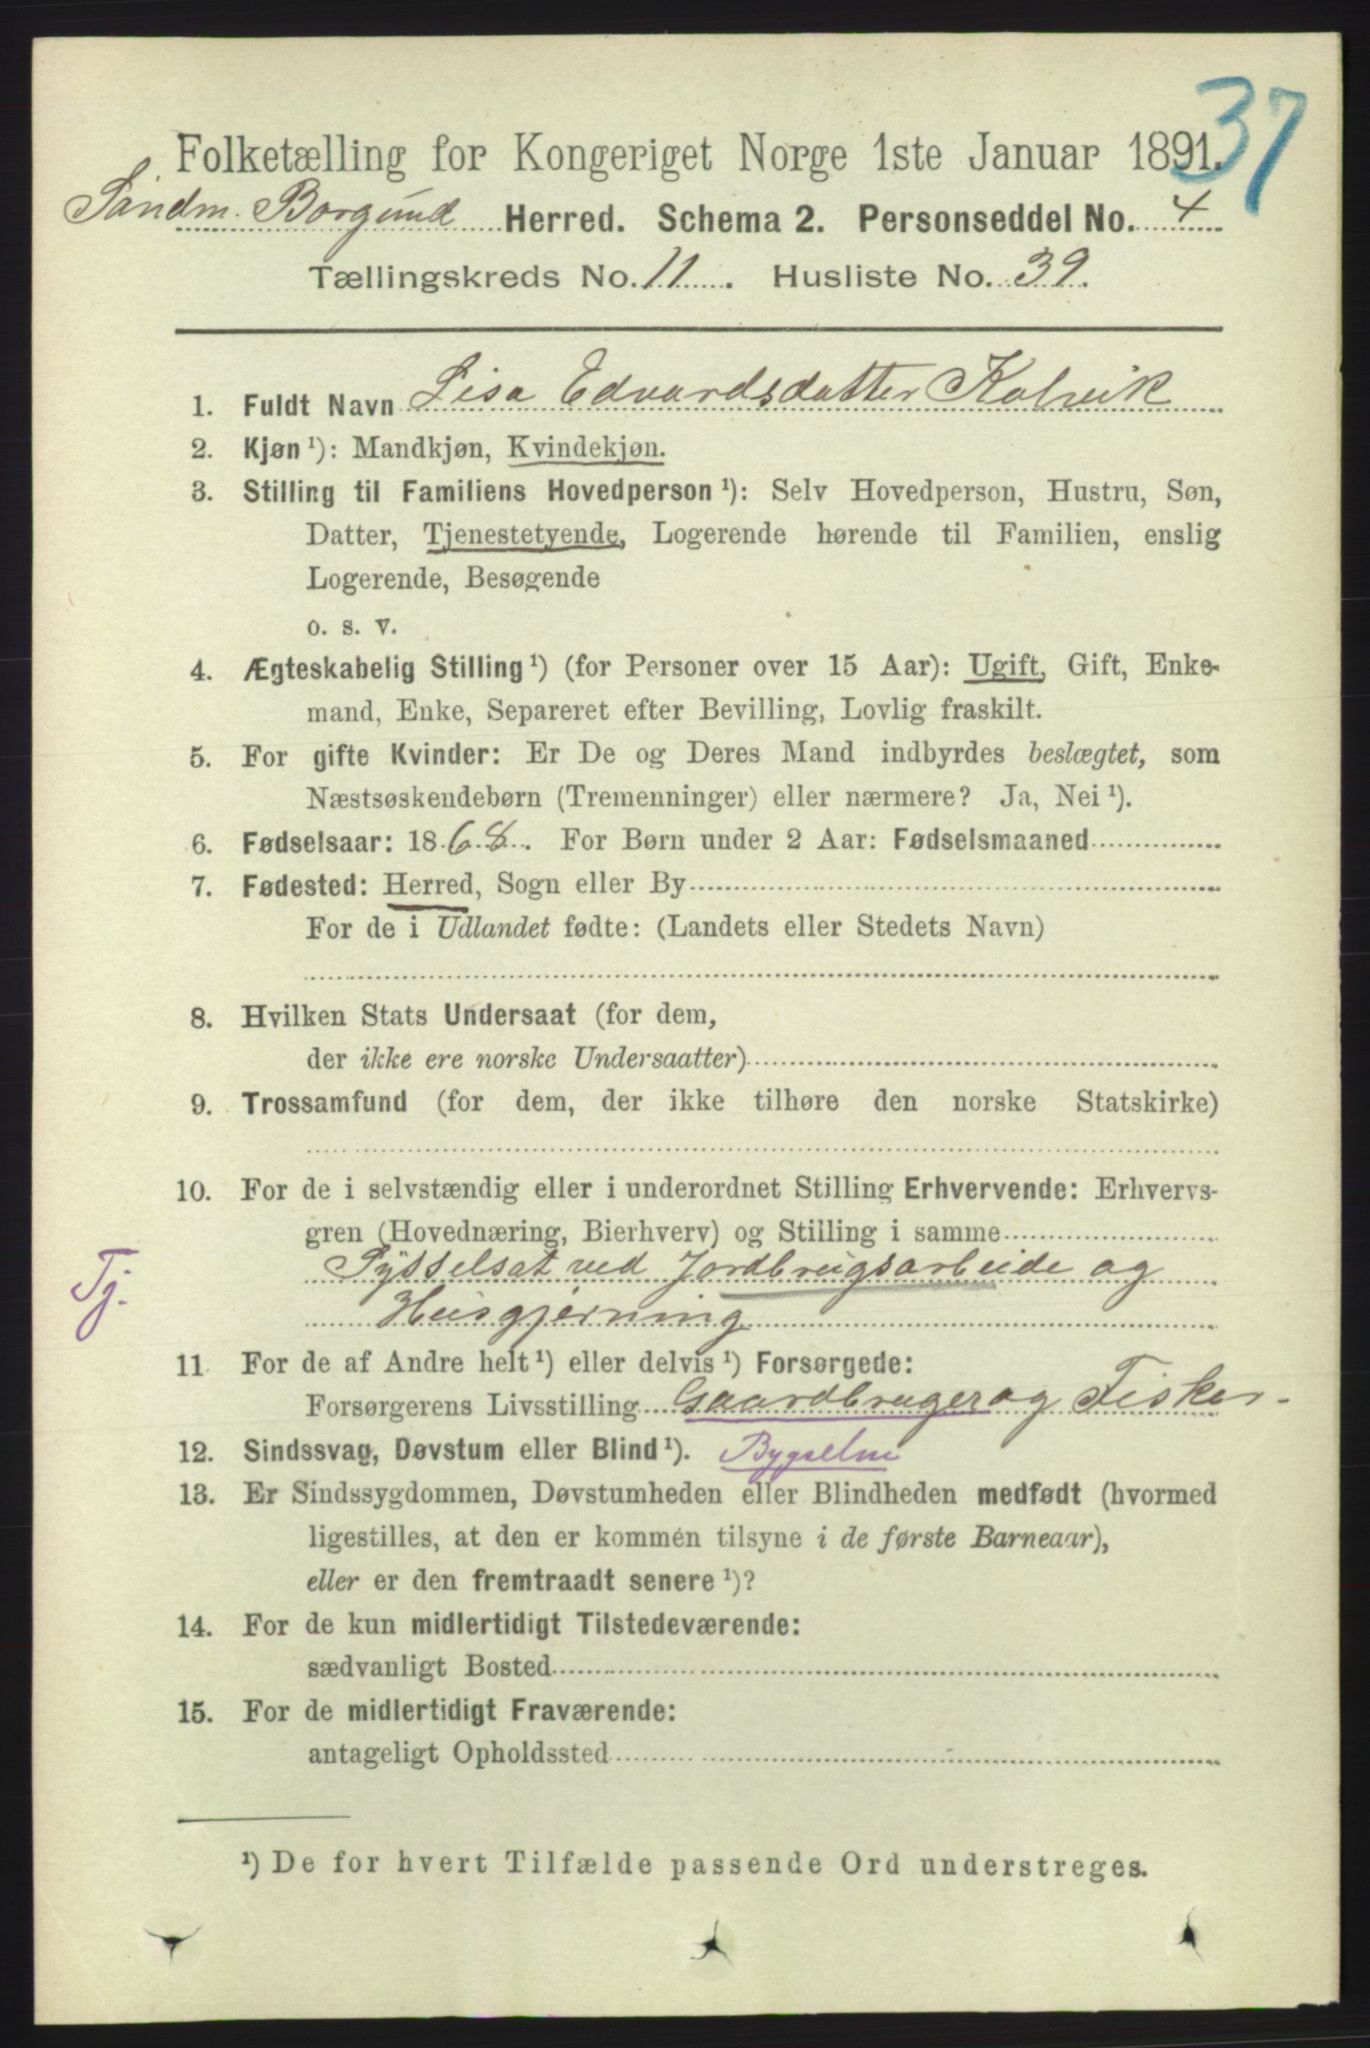 37
Folketælling for Kongeriget Norge 1ste Januar 1891.
Søndm. Borgund Herred. Schema 2. Personseddel No. 4
Tællingskreds No. 11. Husliste No. 39.
1. Fuldt Navn Lisa Edvardsdatter Kalvik
2. Kjøn ¹): Mandkjøn, Kvindekjøn.
3. Stilling til Familiens Hovedperson ¹): Selv Hovedperson, Hustru, Søn,
Datter, Tjenestetyende, Logerende hørende til Familien, enslig
Logerende, Besøgende
o. s. v.
4. Ægteskabelig Stilling ¹) (for Personer over 15 Aar): Ugift, Gift, Enke-
mand, Enke, Separeret efter Bevilling, Lovlig fraskilt.
5. For gifte Kvinder: Er De og Deres Mand indbyrdes beslægtet, som
Næstsøskendebørn (Tremenninger) eller nærmere? Ja, Nei ¹).
6. Fødselsaar: 1868. For Børn under 2 Aar: Fødselsmaaned
7. Fødested: Herred, Sogn eller By
For de i Udlandet fødte: (Landets eller Stedets Navn)
8. Hvilken Stats Undersaat (for dem,
der ikke ere norske Undersaatter)
9. Trossamfund (for dem, der ikke tilhøre den norske Statskirke)
10. For de i selvstændig eller i underordnet Stilling Erhvervende: Erhvervs-
gren (Hovednæring, Bierhverv) og Stilling i samme
Tj. Sysselsat ved Jordbrugsarbeide og
Husgjerning
11 For de af Andre helt ¹) eller delvis ¹) Forsørgede:
Forsørgerens Livsstilling Gaardbruger og Fisker.
12. Sindssvag, Døvstum eller Blind ¹). Bygselm
13. Er Sindssygdommen, Døvstumheden eller Blindheden medfødt (hvormed
ligestilles, at den er kommen tilsyne i de første Barneaar),
eller er den fremtraadt senere ¹)?
14. For de kun midlertidigt Tilstedeværende:
sædvanligt Bosted
15. For de midlertidigt Fraværende:
antageligt Opholdssted
¹) De for hvert Tilfælde passende Ord understreges.